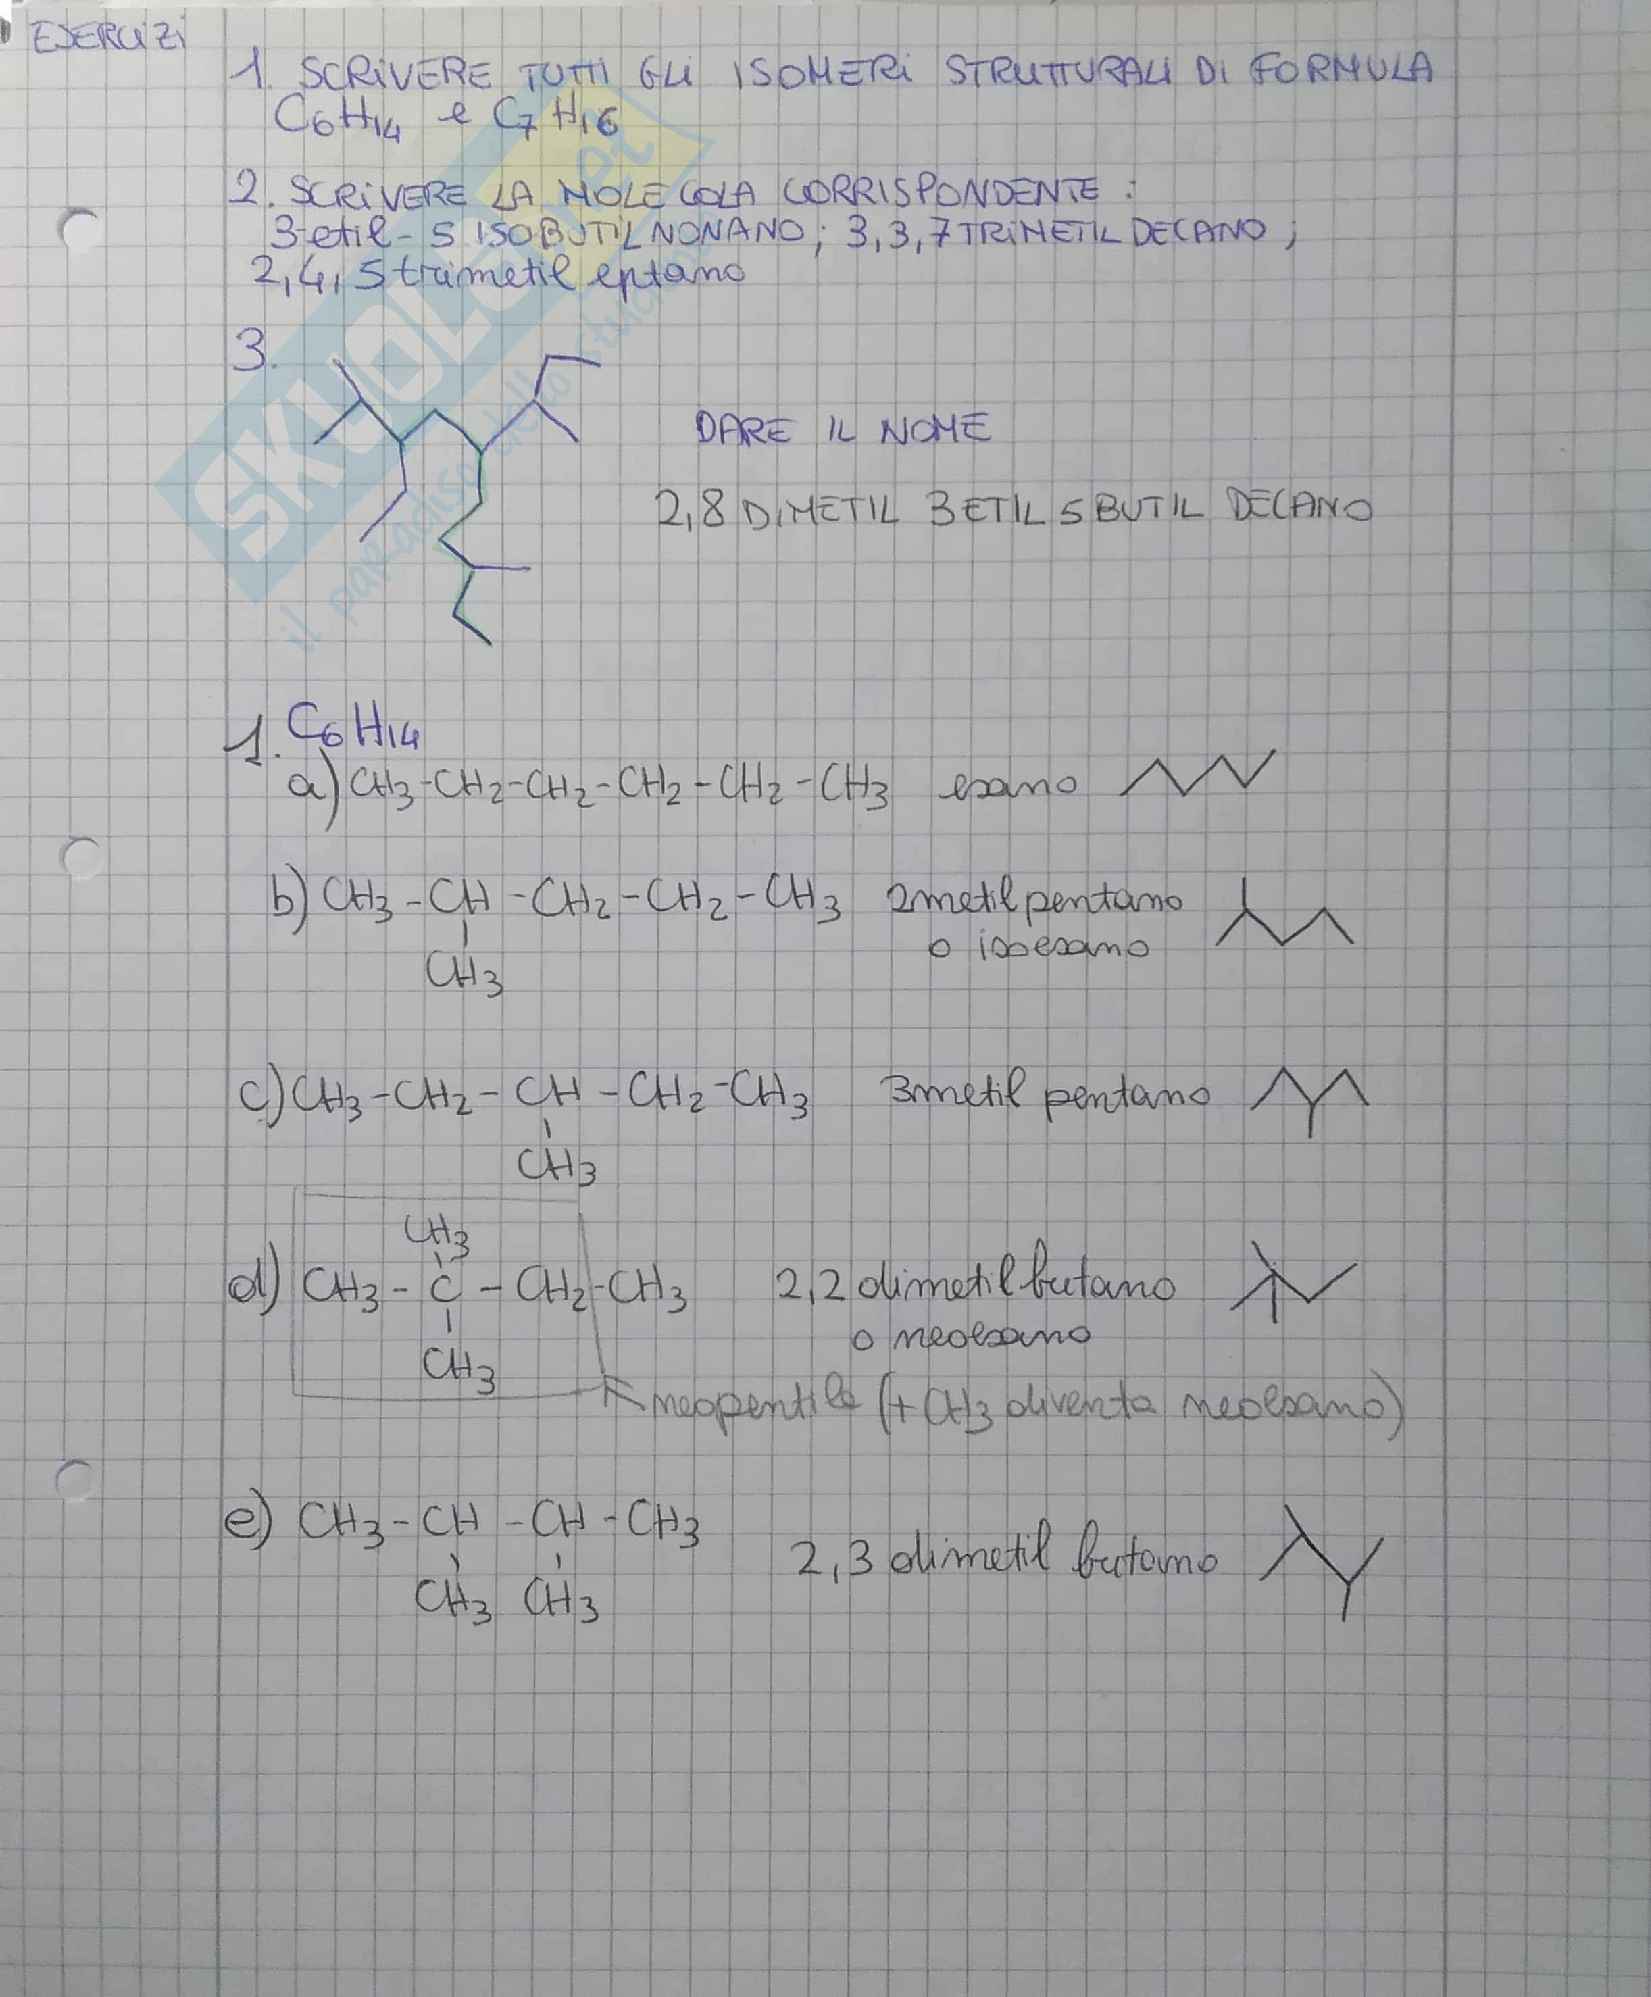 ESERCIZI
1. SCRIVERE TUTTI GLI ISOMERI STRUTTURALI DI FORMULA
C6H14 e C7H16
2. SCRIVERE LA MOLECOLA CORRISPONDENTE :
3-etil-5 ISOBUTIL NONANO; 3,3,7 TRIMETIL DECANO ;
2,4,5 trimetil eptano
3.
DARE IL NOME
2,8 DIMETIL 3 ETIL 5 BUTIL DECANO
SKUOLA.net
il paradiso dello studente
1. C6H14
a) CH3-CH2-CH2-CH2-CH2-CH3 esano
b) CH3-CH-CH2-CH2-CH3 2metilpentano
o isoesano
CH3
c) CH3-CH2-CH-CH2-CH3 3metil pentano
CH3
CH3
d) CH3-C-CH2-CH3 2,2 dimetil butano
o neoesano
CH3
neopentile (+ CH3 diventa neoesano)
e) CH3-CH-CH-CH3
2,3 dimetil butano
CH3 CH3